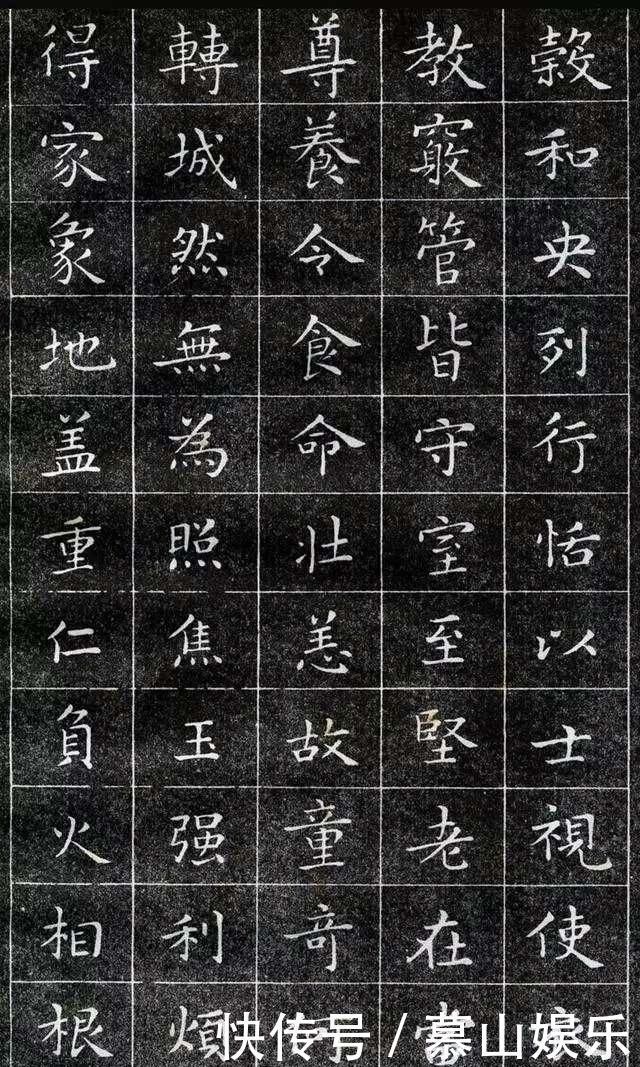 穀和央列行恬以士視使
教竅管皆守室至堅老在當
尊養令食命壯恙故童奇
轉城然無為照焦玉强利煩
得家象地盖重仁負火相根
快传号 / 慕山娱乐